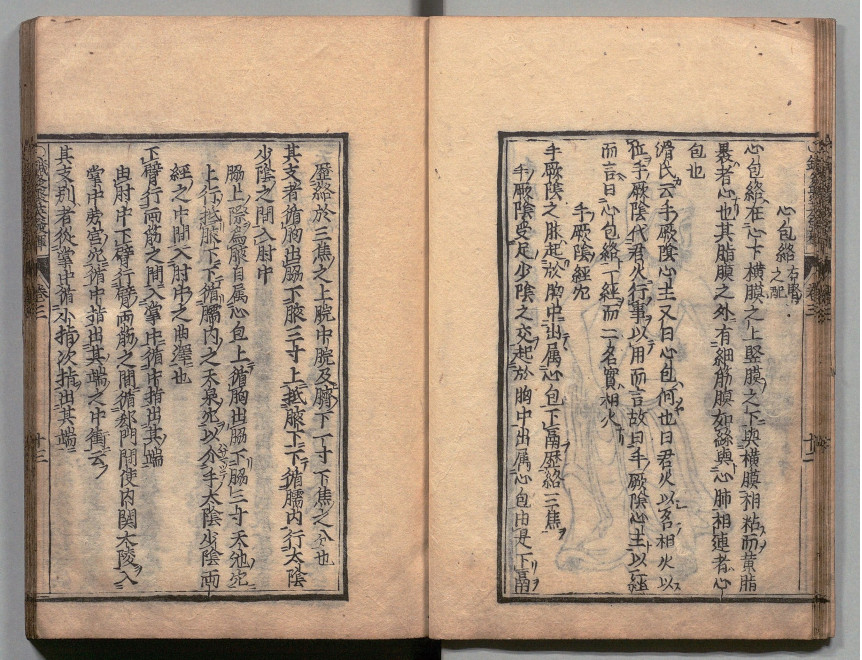 心包絡 右腎之配
心包絡在心下横膜之上竪膜之下與横膜相粘而黄脂
裹者心也其脂膜之外有細筋膜如絲與心肺相連者心
包也
滑氏云手厥陰心主又曰心包何也曰君火以名相火以
位手厥陰代君火行事以用而言故曰手厥陰心主以經
而言曰心包絡一經而二名實相火
手厥陰經穴
手厥陰之脉起於胸中出属心包下膈歴絡三焦
手厥陰受足少陰之交起於胸中出属心包由是下膈
歴絡於三焦之上脘中脘及臍下一寸下焦之分也
其支者循胸出脇下腋三寸上抵腋下下循臑内行太陰
少陰之間入肘中
脇上際為腋自属心包上循胸出脇下脇三寸天池穴
上行抵腋下下循臑内之天泉穴以介乎太陰少陰両
經之中間入肘中之曲澤也
下臂行両筋之間入掌中循中指出其端
由肘中下臂行臂両筋之間循郄門間使内関大陵入
掌中労宮穴循中指出其端之中衝云
其支别者從掌中循小指次指出其端
卷三
十三